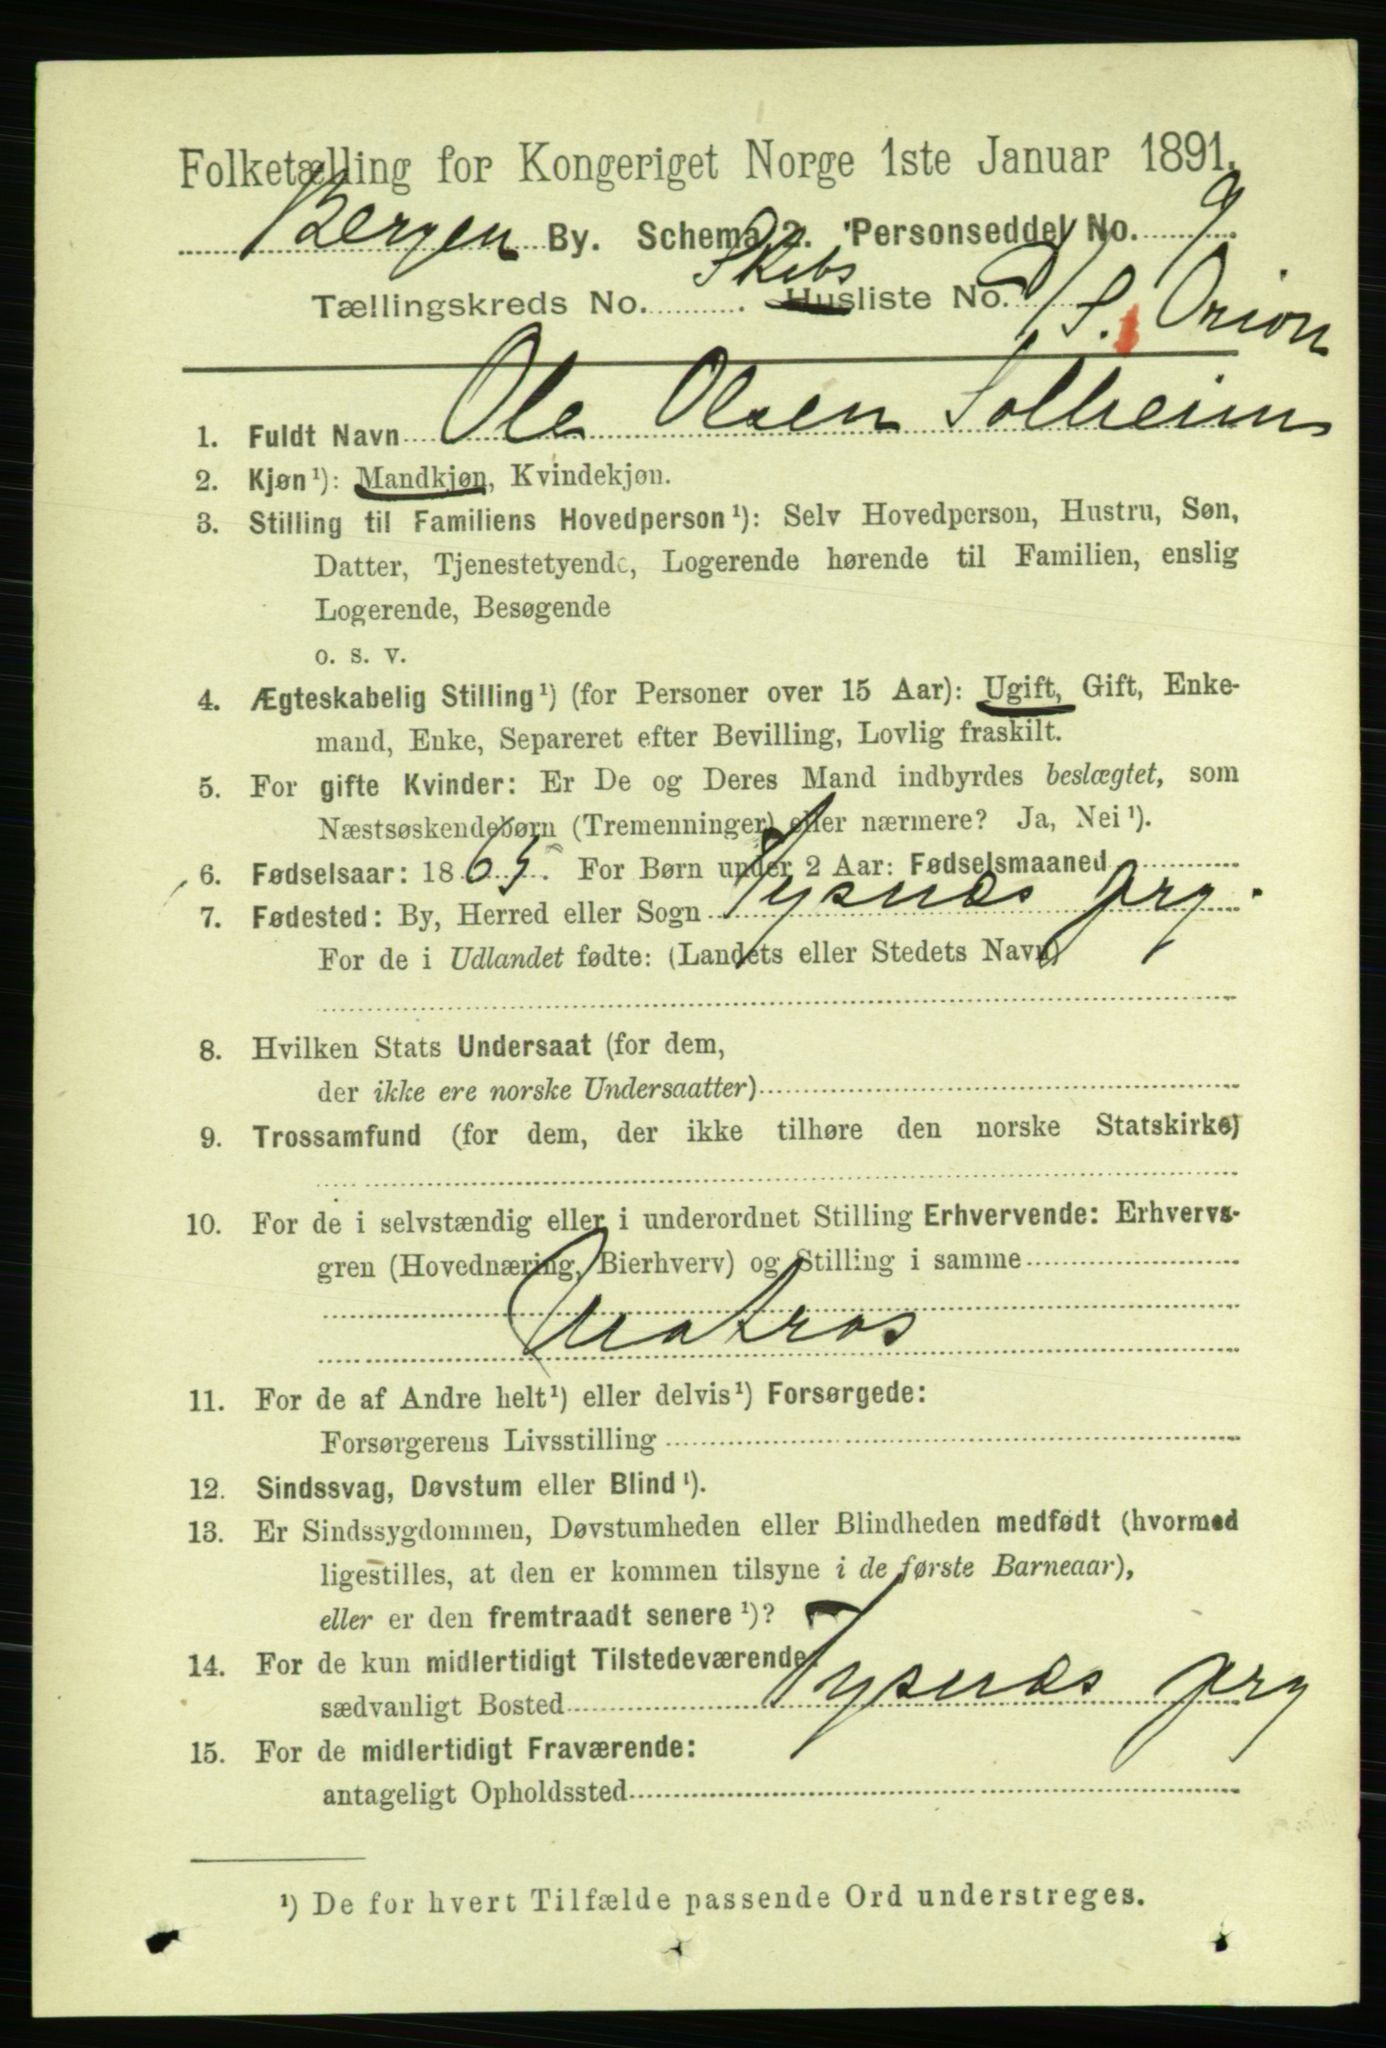 Folketælling for Kongeriget Norge 1ste Januar 1891.
Bergen By. Schema 2. Personseddel No. 9
Tællingskreds No. . Skibs Husliste No. D/S. Orion
1. Fuldt Navn Ole Olsen Solheim
2. Kjøn¹): Mandkjøn, Kvindekjøn.
3. Stilling til Familiens Hovedperson¹): Selv Hovedperson, Hustru, Søn,
Datter, Tjenestetyende, Logerende hørende til Familien, enslig
Logerende, Besøgende
o. s. v.
4. Ægteskabelig Stilling¹) (for Personer over 15 Aar): Ugift, Gift, Enke-
mand, Enke, Separeret efter Bevilling, Lovlig fraskilt.
5. For gifte Kvinder: Er De og Deres Mand indbyrdes beslægtet, som
Næstsøskendebørn (Tremenninger) eller nærmere? Ja, Nei¹).
6. Fødselsaar: 1865. For Børn under 2 Aar: Fødselsmaaned
7. Fødested: By, Herred eller Sogn Tysnæs prg.
For de i Udlandet fødte: (Landets eller Stedets Navn)
8. Hvilken Stats Undersaat (for dem,
der ikke ere norske Undersaatter)
9. Trossamfund (for dem, der ikke tilhøre den norske Statskirke)
10. For de i selvstændig eller i underordnet Stilling Erhvervende: Erhvervs-
gren (Hovednæring, Bierhverv) og Stilling i samme
Matros
11. For de af Andre helt¹) eller delvis¹) Forsørgede:
Forsørgerens Livsstilling
12. Sindssvag, Døvstum eller Blind¹).
13. Er Sindssygdommen, Døvstumheden eller Blindheden medfødt (hvormed
ligestilles, at den er kommen tilsyne i de første Barneaar),
eller er den fremtraadt senere¹)?
14. For de kun midlertidigt Tilstedeværende:
sædvanligt Bosted Tysnæs prg
15. For de midlertidigt Fraværende:
antageligt Opholdssted
¹) De for hvert Tilfælde passende Ord understreges.